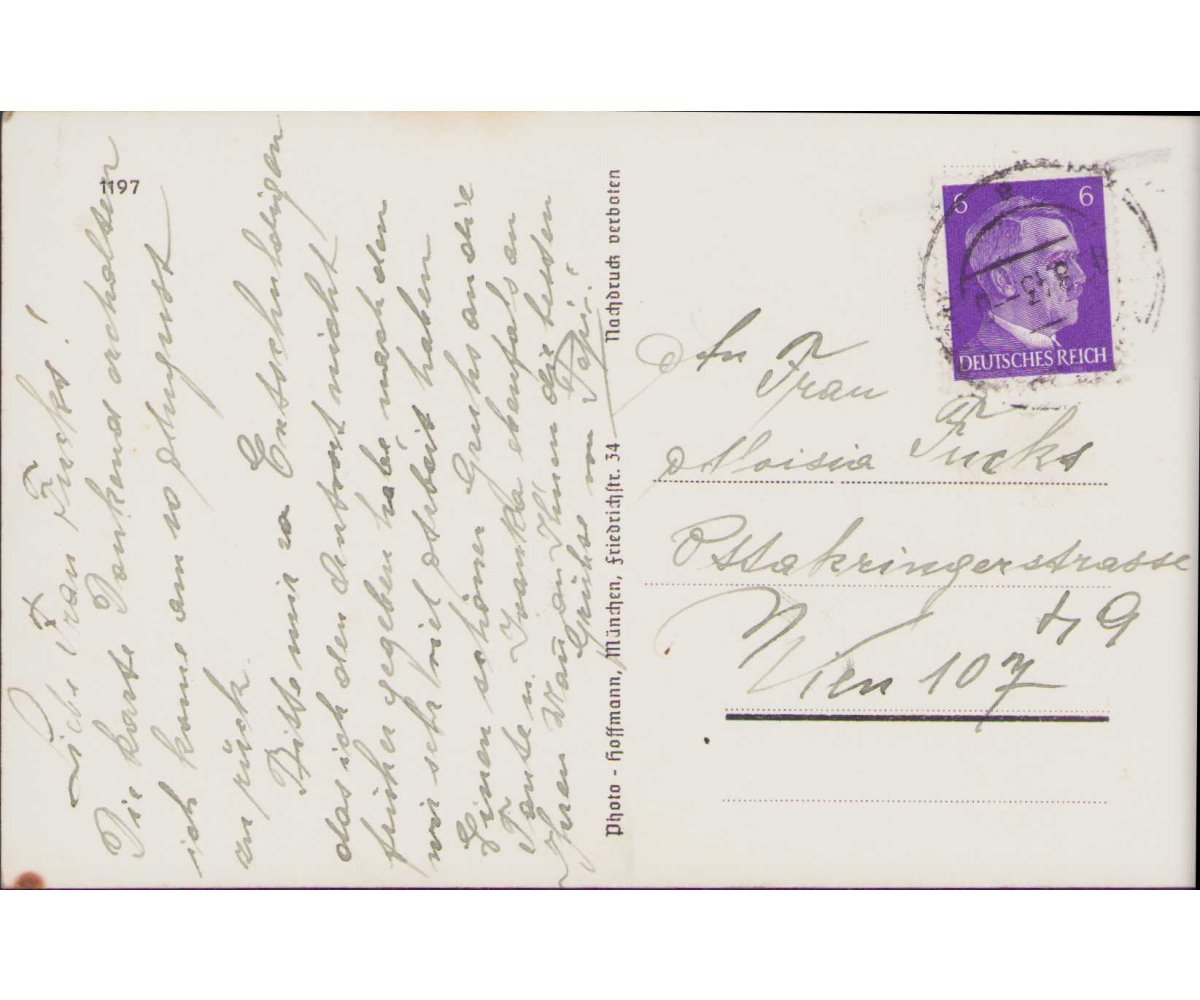 1197
Liebe Frau Fucks!
Die Karte Dankend erhalten
ich kome am 10 August
zurück.
Bitte mir zu Entschuldigen
das ich den Antwort nicht
früher gegeben habe, nach den
wir sehr viel Arbeit haben
Einen schönen Gruhs an die
Tante u. Ivanka ebenfals an
Ihren Mann Ihnen die besten
Grühse von Pepi.
Photo - Hoffmann, München, Friedrichstr. 34 Nachdruck verboten
6 6
DEUTSCHES REICH
An
Frau
Aloisia Fucks
Ottakringerstrasse
Wien 107